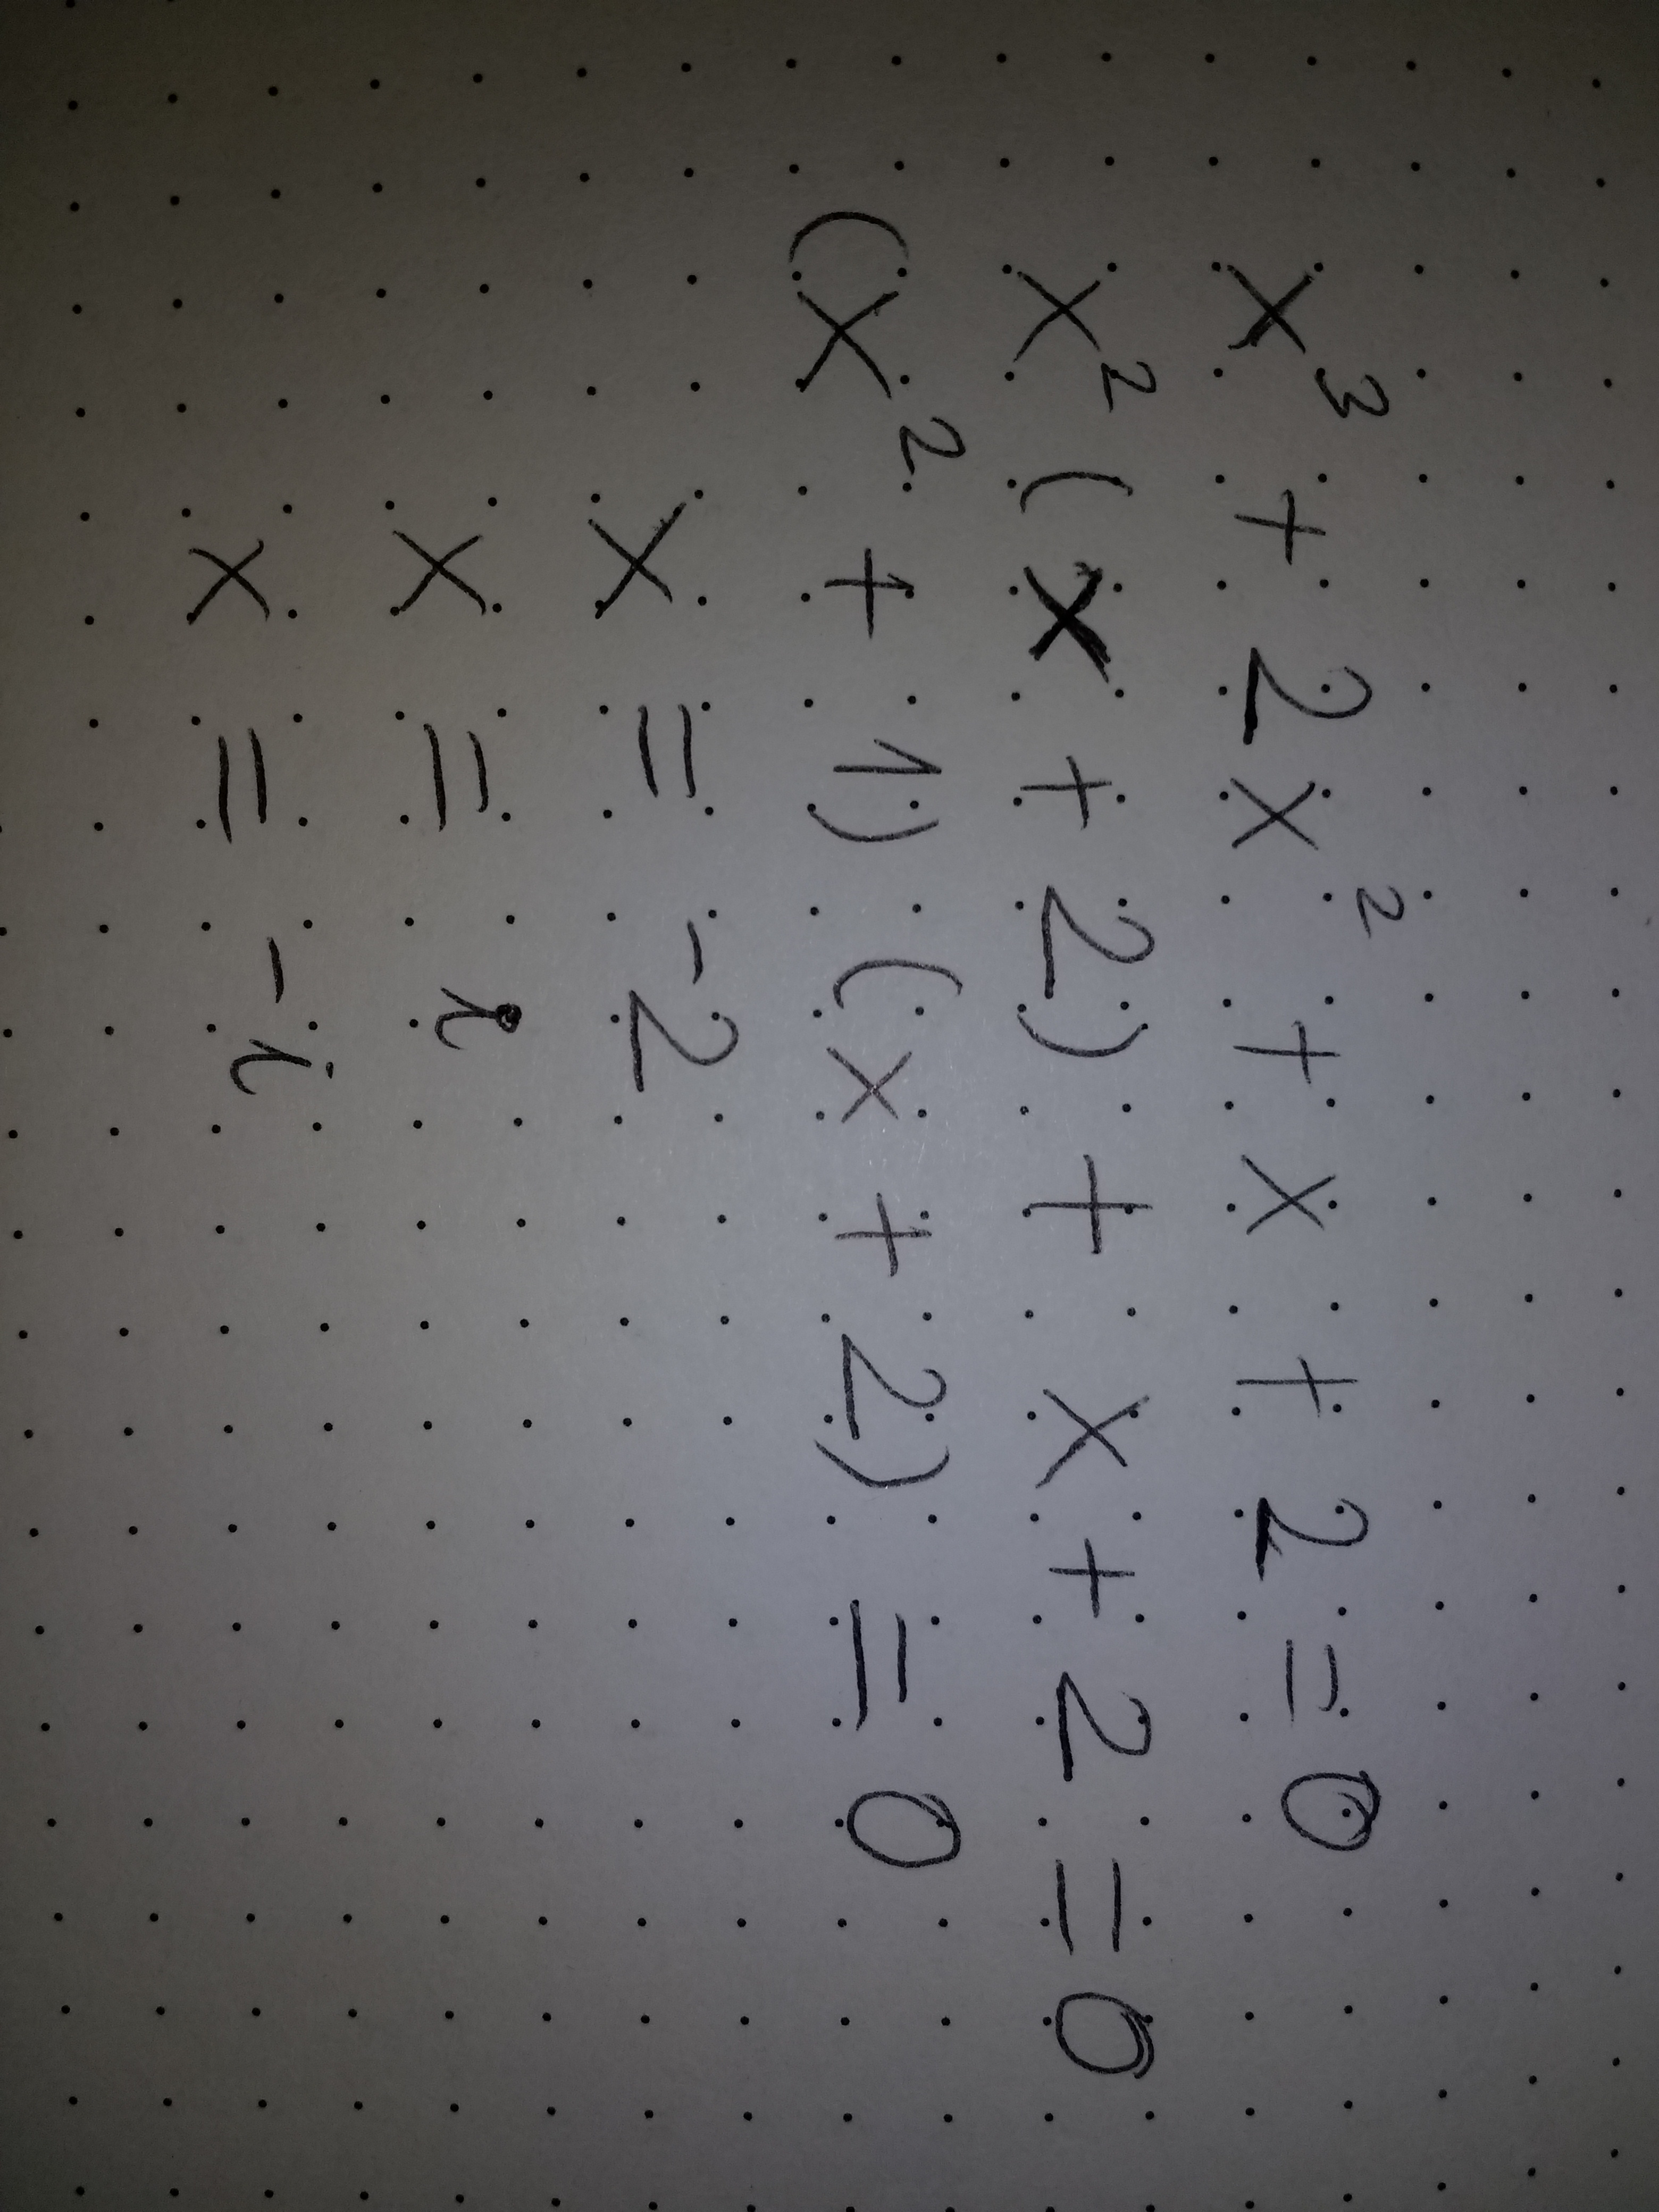 x³ + 2x² + x + 2 = 0
x² (x + 2) + x + 2 = 0
(x² + 1) (x + 2) = 0
x = -2
x = i
x = -i